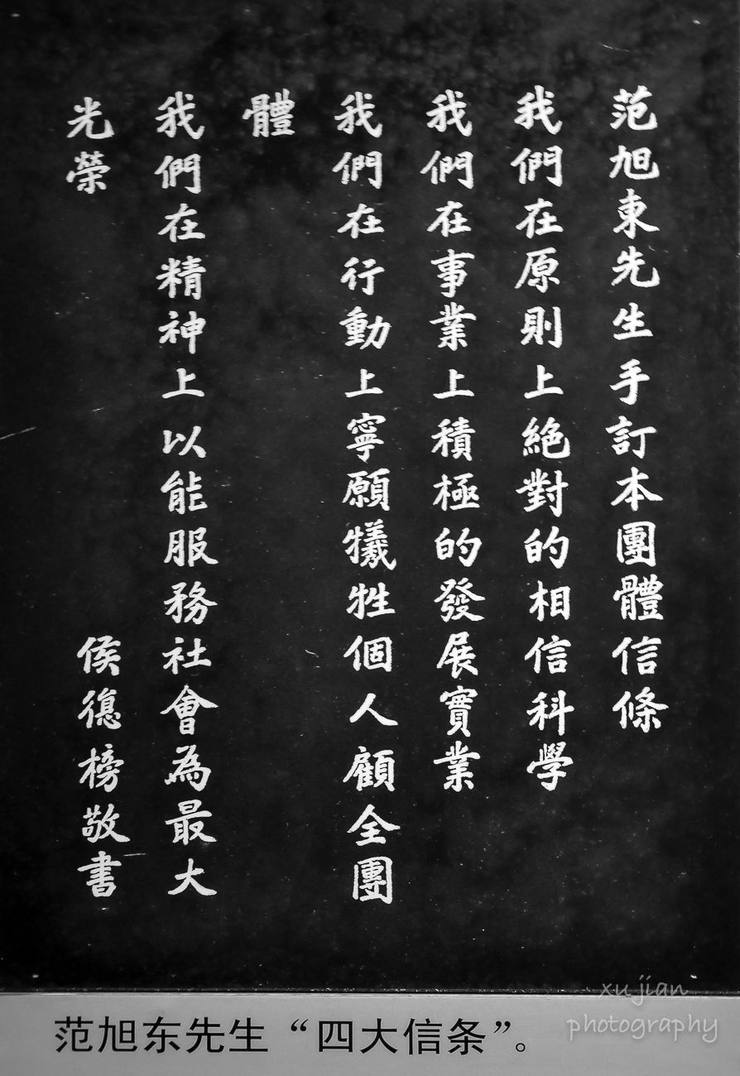 范旭東先生手訂本團體信條
我們在原則上絕對的相信科學
我們在事業上積極的發展實業
我們在行動上寧願犧牲個人顧全團
體
我們在精神上以能服務社會為最大
光榮
侯德榜敬書
范旭东先生“四大信条”。
xujian
photography